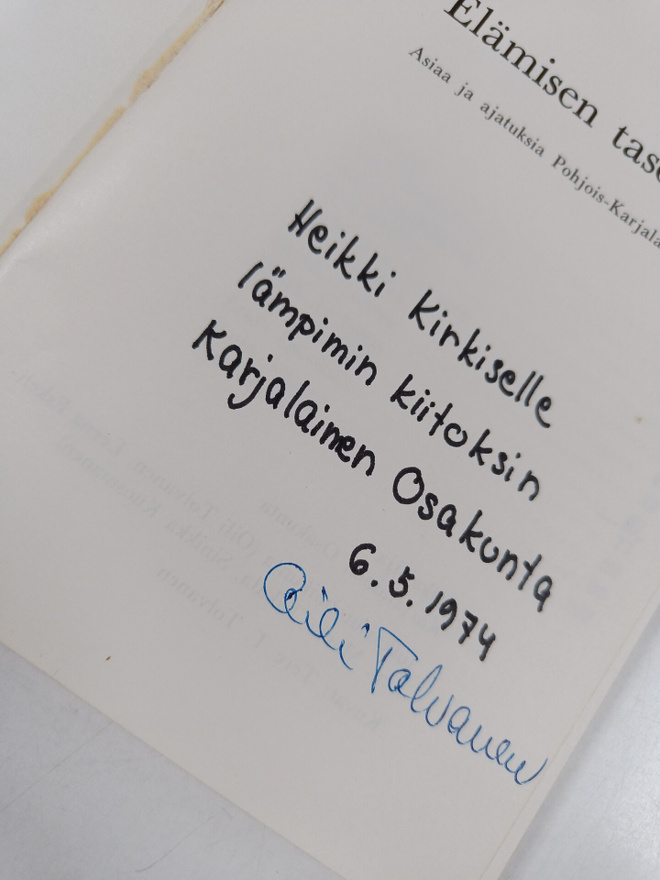 Elämisen
Asiaa ja ajatuksia Pohjois-Karjala
Heikki Kirkiselle
lämpimin kiitoksin
Karjalainen Osakunta
6.5.1974
Oili Tolvanen